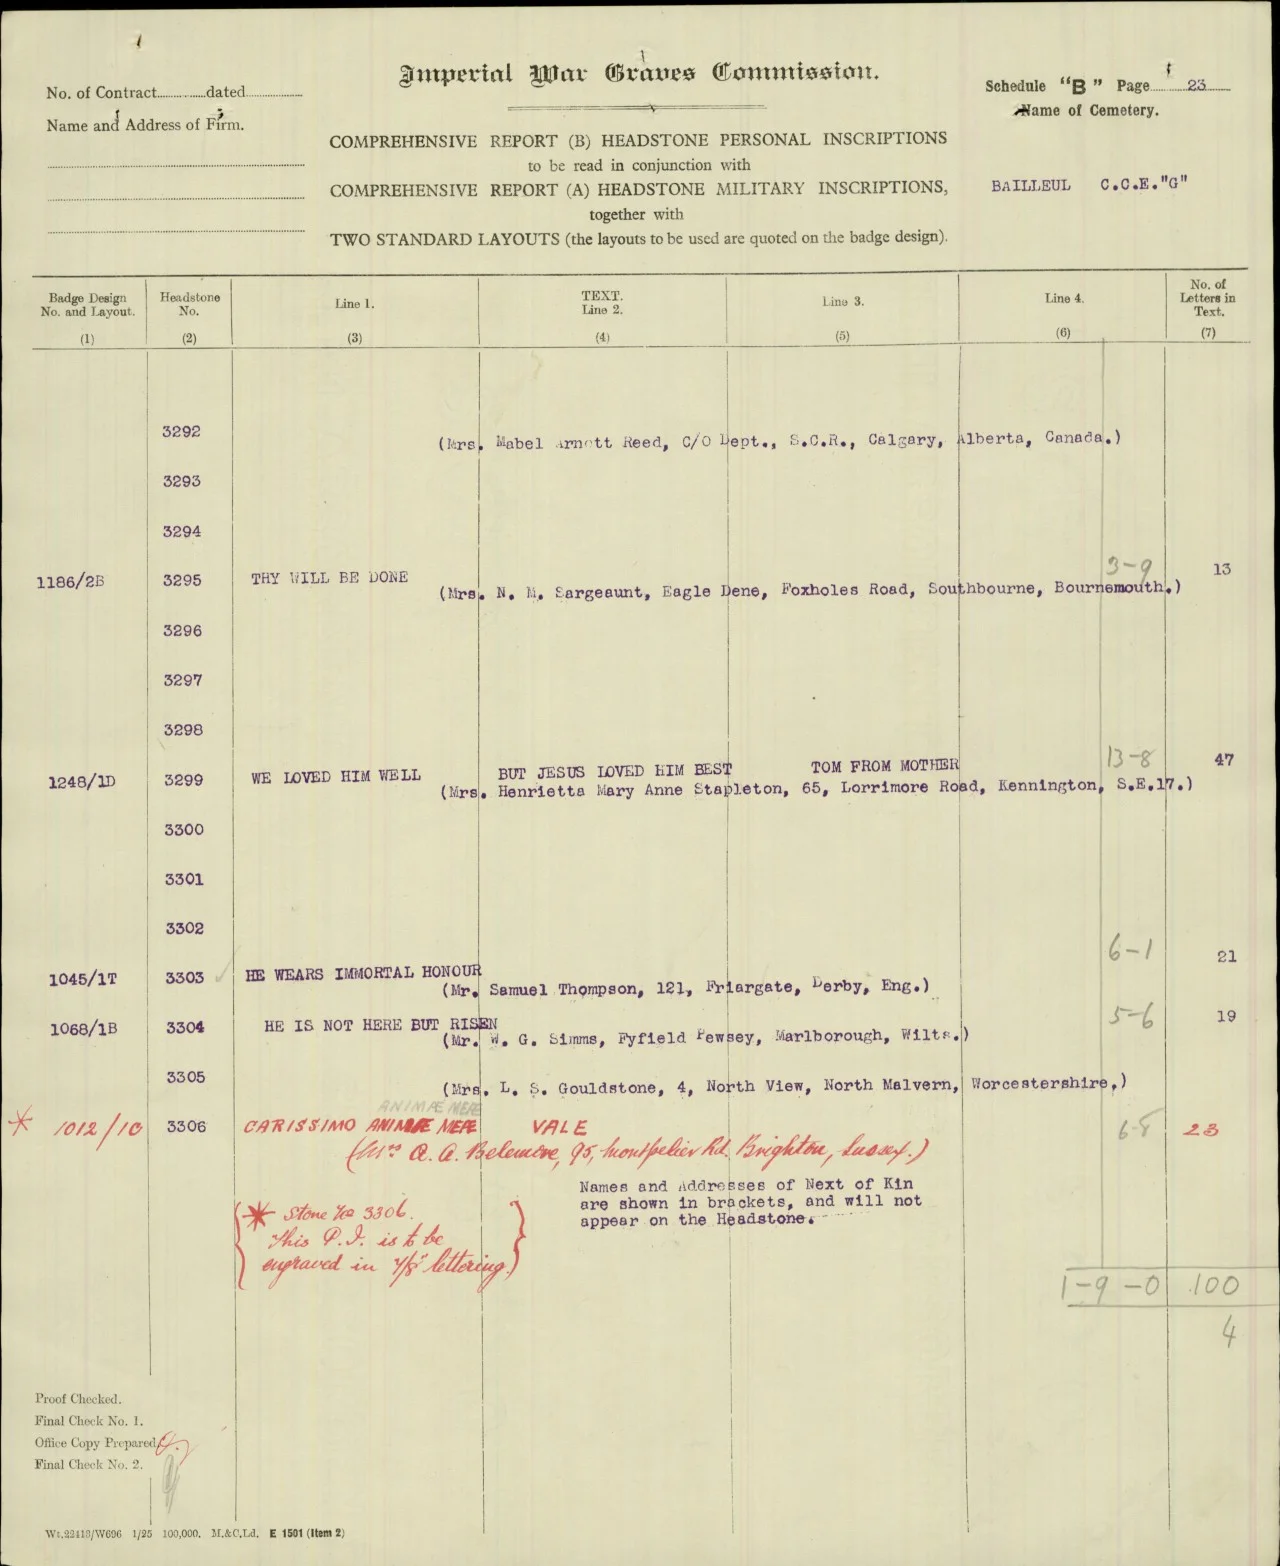 Imperial War Graves Commission.
No. of Contract..............dated..................
Name and Address of Firm.
Schedule "B" Page 23
Name of Cemetery.
BAILLEUL C.C.E."G"
COMPREHENSIVE REPORT (B) HEADSTONE PERSONAL INSCRIPTIONS
to be read in conjunction with
COMPREHENSIVE REPORT (A) HEADSTONE MILITARY INSCRIPTIONS,
together with
TWO STANDARD LAYOUTS (the layouts to be used are quoted on the badge design).
Badge Design No. and Layout. (1) Headstone No. (2) Line 1. (3) TEXT. Line 2. (4) Line 3. (5) Line 4. (6) No. of Letters in Text. (7)
3292
(Mrs. Mabel Arnott Reed, C/O Dept., S.C.R., Calgary, Alberta, Canada.)
3293
3294
1186/2B 3295 THY WILL BE DONE 3-9 13
(Mrs. N. M. Sargeaunt, Eagle Dene, Foxholes Road, Southbourne, Bournemouth.)
3296
3297
3298
1248/1D 3299 WE LOVED HIM WELL BUT JESUS LOVED HIM BEST TOM FROM MOTHER 13-8 47
(Mrs. Henrietta Mary Anne Stapleton, 65, Lorrimore Road, Kennington, S.E.17.)
3300
3301
3302
1045/1T 3303 HE WEARS IMMORTAL HONOUR 6-1 21
(Mr. Samuel Thompson, 121, Friargate, Derby, Eng.)
1068/1B 3304 HE IS NOT HERE BUT RISEN 5-6 19
(Mr. W. G. Simms, Fyfield Pewsey, Marlborough, Wilts.)
3305
(Mrs. L. S. Gouldstone, 4, North View, North Malvern, Worcestershire.)
ANIMÆ MEÆ
* 1012/1C 3306 CARISSIMO ANIMÆ MEÆ VALE 6-8 23
(Mrs A. A. Belemore, 95, Montpelier Rd. Brighton, Sussex.)
Names and Addresses of Next of Kin
are shown in brackets, and will not
appear on the Headstone.
* Stone No 3306.
This P.I. is to be
engraved in 7/8" lettering.
1-9-0 100
4
Proof Checked.
Final Check No. 1.
Office Copy Prepared.
Final Check No. 2.
Wt.22413/W696 1/25 100,000. M.&C.Ld. E 1501 (Item 2)